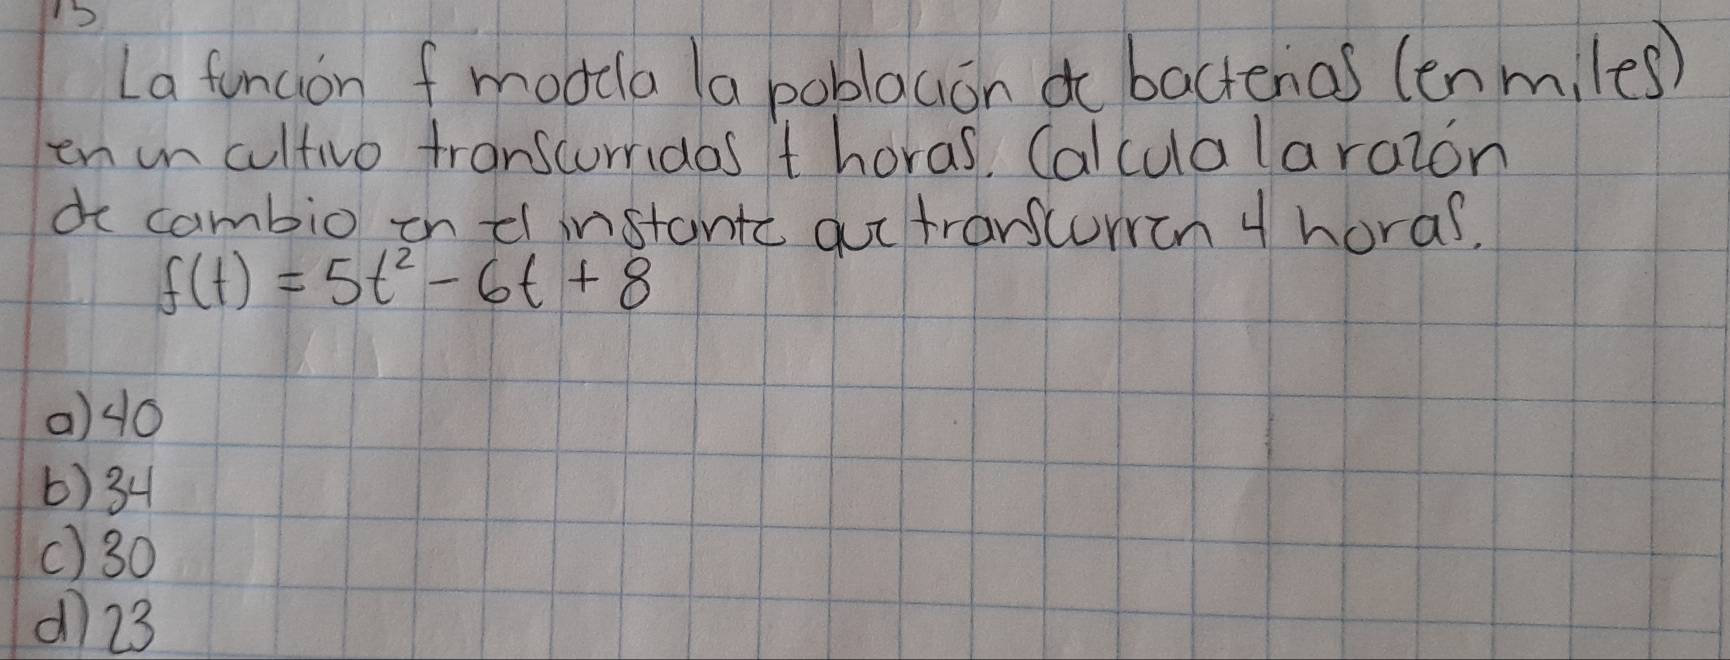 15
La función f modela la población de bacterias (en miles)
en un cultivo transcurridas t horas. Calcula la razón
de cambio en el instante que transcurren 4 horas.
f(t) = 5t² - 6t + 8
a) 40
b) 34
c) 30
d) 23